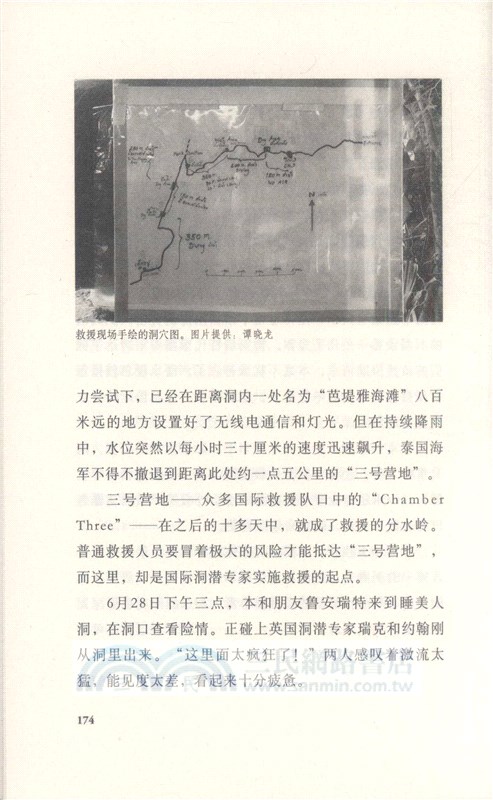 350m
救援现场手绘的洞穴图。图片提供：谭晓龙
力尝试下，已经在距离洞内一处名为“芭堤雅海滩”八百
米远的地方设置好了无线电通信和灯光。但在持续降雨
中，水位突然以每小时三十厘米的速度迅速飙升，泰国海
军不得不撤退到距离此处约一点五公里的“三号营地”。
三号营地——众多国际救援队口中的“Chamber
Three”——在之后的十多天中，就成了救援的分水岭。
普通救援人员要冒着极大的风险才能抵达“三号营地”，
而这里，却是国际洞潜专家实施救援的起点。
6月28日下午三点，本和朋友鲁安瑞特来到睡美人
洞，在洞口查看险情。正碰上英国洞潜专家瑞克和约翰刚
从洞里出来。“这里面太疯狂了！”两人感叹着激流太
猛，能见度太差，看起来十分疲惫。
三民網路書店
www.sanmin.com.tw
174